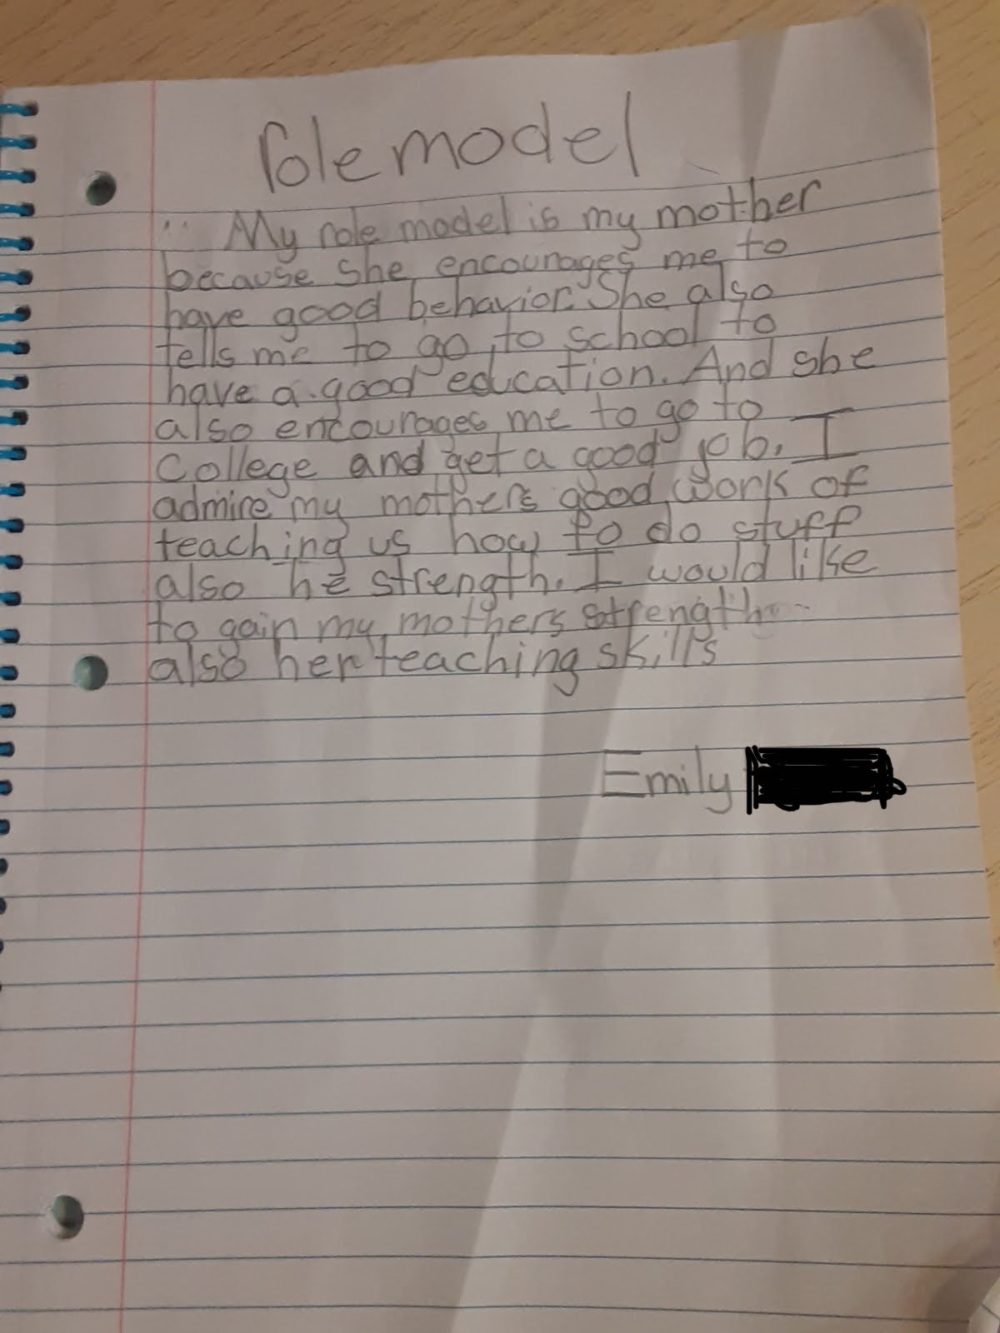 Role model
My role model is my mother
because she encourages me to
have good behavior. She also
tells me to go to school to
have a good education. And she
also encourages me to go to
College and get a good job. I
admire my mothers good work of
teaching us how to do stuff
also he strength. I would like
to gain my mothers strength
also her teaching skills
Emily